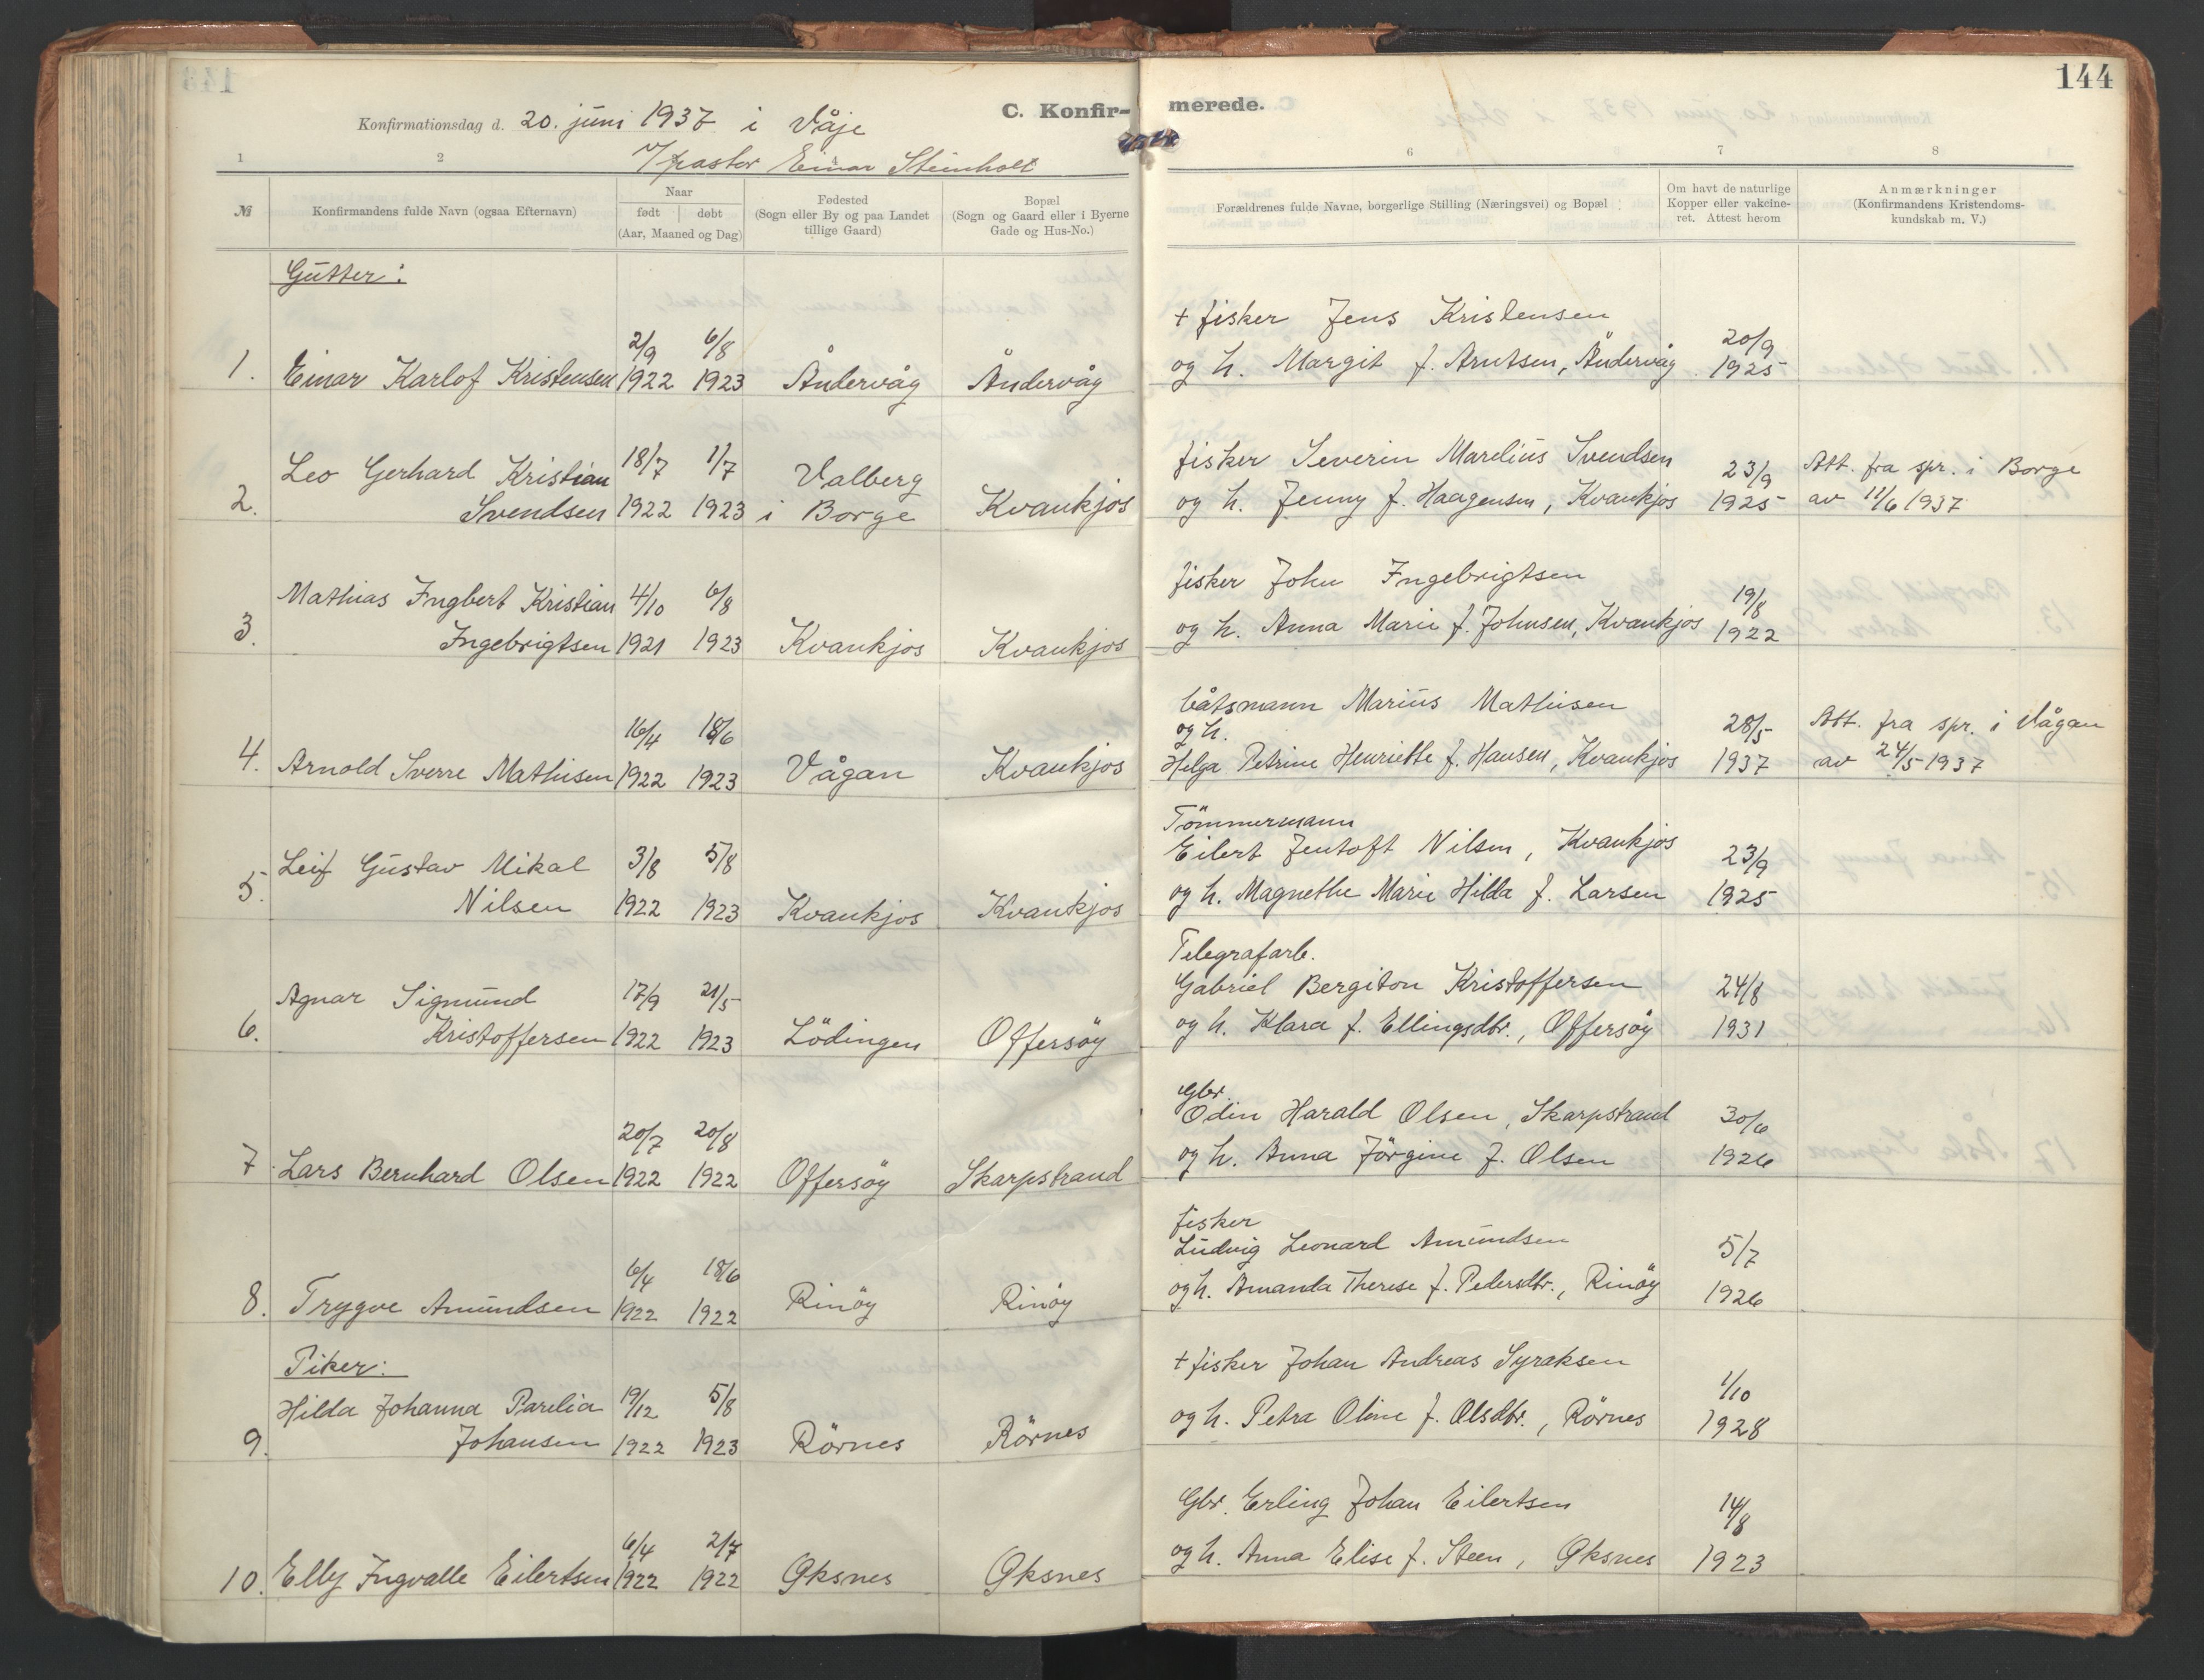 144
C. Konfir- merede.
Konfirmationsdag d. 20. juni 1937 i Våje
v/pastor Einar Steinholt
1 2 4 6 7 8
№ Konfirmandens fulde Navn (ogsaa Efternavn)
Naar
født døbt
(Aar, Maaned og Dag)
Fødested
(Sogn eller By og paa Landet
tillige Gaard)
Bopæl
(Sogn og Gaard eller i Byerne
Gade og Hus-No.)
Forældrenes fulde Navne, borgerlige Stilling (Næringsvei) og Bopæl
Om havt de naturlige
Kopper eller vakcine-
ret. Attest herom
Anmærkninger
(Konfirmandens Kristendoms-
kundskab m. V.)
Gutter:
2/9 6/8 + fisker Jens Kristensen 20/9
1. Einar Karlof Kristensen 1922 1923 Åndervåg Åndervåg og h. Margit f. Arntsen, Åndervåg 1925
Leo Gerhard Kristian 18/7 1/7 Valberg fisker Severin Marelius Svendsen 23/9 Att. fra spr. i Borge
2. Svendsen 1922 1923 i Borge Kvankjos og h. Jenny f. Haagensen, Kvankjos 1925 av 11/6 1937
Mathias Ingbert Kristian 4/10 6/8 fisker John Ingebrigtsen 19/8
3. Ingebrigtsen 1921 1923 Kvankjos Kvankjos og h. Anna Marie f. Johnsen, Kvankjos 1922
16/4 18/6 båtsmann Marius Mathisen 28/5 Att. fra spr. i Vågan
og h.
4. Arnold Sverre Mathisen 1922 1923 Vågan Kvankjos Helga Petrine Henriette f. Hansen, Kvankjos 1937 av 24/5 1937
Tömmermann
Leif Gustav Mikal 3/8 5/8 Eilert Jentoft Nilsen, Kvankjos 23/9
5. Nilsen 1922 1923 Kvankjos Kvankjos og h. Magnethe Marie Hilda f. Larsen 1925
Telegrafarb.
Agnar Sigmund 17/9 21/5 Gabriel Bergiton Kristoffersen 24/8
6. Kristoffersen 1922 1923 Lödingen Offersöy og h. Klara f. Ellingsdtr., Offersöy 1931
Gbr.
20/7 20/8 Odin Harald Olsen, Skarpstrand 30/6
7. Lars Bernhard Olsen 1922 1922 Offersöy Skarpstrand og h. Anna Jörgine f. Olsen 1926
fisker
6/4 18/6 Ludvig Leonard Amundsen 5/7
8. Trygve Amundsen 1922 1922 Rinöy Rinöy og h. Amanda Therese f. Pedersdtr., Rinöy 1926
Piker:
Hilda Johanna Parelia 19/12 5/8 + fisker Johan Andreas Syraksen 1/10
9. Johansen 1922 1923 Rörnes Rörnes og h. Petra Oline f. Olsdtr., Rörnes 1928
6/4 2/7 Gbr. Erling Johan Eilertsen 14/8
10. Elly Ingvalle Eilertsen 1922 1922 Øksnes Øksnes og h. Anna Elise f. Steen, Øksnes 1923